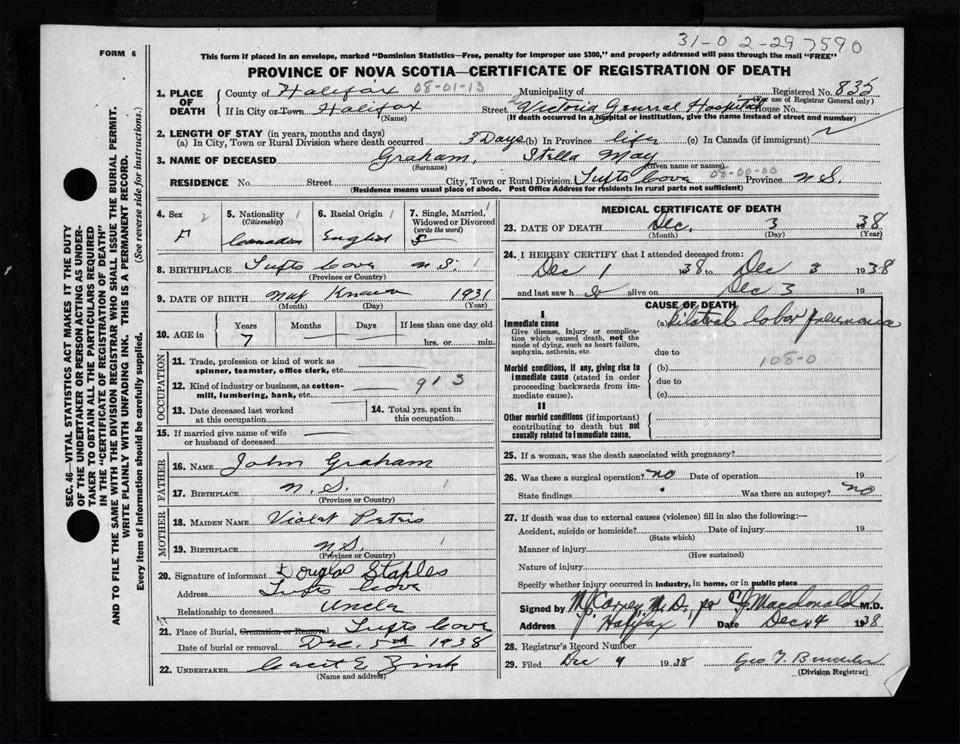 31-0 2-29 7590
FORM 6
This form if placed in an envelope, marked "Dominion Statistics—Free, penalty for improper use $300," and properly addressed will pass through the mail "FREE"
PROVINCE OF NOVA SCOTIA—CERTIFICATE OF REGISTRATION OF DEATH
SEC. 46—VITAL STATISTICS ACT MAKES IT THE DUTY
OF THE UNDERTAKER OR PERSON ACTING AS UNDER-
TAKER TO OBTAIN ALL THE PARTICULARS REQUIRED
IN THE "CERTIFICATE OF REGISTRATION OF DEATH"
AND TO FILE THE SAME WITH THE DIVISION REGISTRAR WHO SHALL ISSUE THE BURIAL PERMIT.
WRITE PLAINLY WITH UNFADING INK. THIS IS A PERMANENT RECORD.
Every item of information should be carefully supplied. (See reverse side for instructions.)
1. PLACE OF DEATH County of Halifax 08-01-13 Municipality of Registered No. 835
(For use of Registrar General only)
If in City or Town Halifax Street Victoria General Hospital House No.
(Name) (If death occurred in a hospital or institution, give the name instead of street and number)
2. LENGTH OF STAY (in years, months and days)
(a) In City, Town or Rural Division where death occurred 3 Days (b) In Province life (c) In Canada (if immigrant)
3. NAME OF DECEASED Graham, Stella May
(Surname) (Given name or names)
RESIDENCE No. Street City, Town or Rural Division Tufts Cove 08-00-00 Province N.S.
(Residence means usual place of abode. Post Office Address for residents in rural parts not sufficient)
4. Sex 2 F
5. Nationality 1 (Citizenship) Canadian
6. Racial Origin 1 English
7. Single, Married, 1 Widowed or Divorced (write the word) S
8. BIRTHPLACE Tufts Cove N.S. 1
(Province or Country)
9. DATE OF BIRTH Not Known 1931
(Month) (Day) (Year)
10. AGE in Years 7 Months — Days — If less than one day old hrs. or min.
OCCUPATION
11. Trade, profession or kind of work as spinner, teamster, office clerk, etc.
12. Kind of industry or business, as cotton-mill, lumbering, bank, etc. 913
13. Date deceased last worked at this occupation
14. Total yrs. spent in this occupation
15. If married give name of wife or husband of deceased
FATHER
16. NAME John Graham
17. BIRTHPLACE N.S. 1
(Province or Country)
MOTHER
18. MAIDEN NAME Violet Peters
19. BIRTHPLACE N.S. 1
(Province or Country)
20. Signature of informant Douglas Staples
Address Tufts Cove
Relationship to deceased Uncle
21. Place of Burial, Cremation or Removal Tufts Cove
Date of burial or removal Dec. 5th 1938
22. UNDERTAKER Zink
(Name and address)
MEDICAL CERTIFICATE OF DEATH
23. DATE OF DEATH Dec. 3 1938
(Month) (Day) (Year)
24. I HEREBY CERTIFY that I attended deceased from:
Dec 1 1938 to Dec 3 1938
and last saw h alive on Dec 3 19
CAUSE OF DEATH
I
Immediate cause (a) Bilateral lobar pneumonia
Give disease, injury or complication which caused death, not the mode of dying, such as heart failure, asphyxia, asthenia, etc.
due to
108-0
Morbid conditions, if any, giving rise to immediate cause (stated in order proceeding backwards from immediate cause). (b)
due to
(c)
II
Other morbid conditions (if important) contributing to death but not causally related to immediate cause.
25. If a woman, was the death associated with pregnancy?
26. Was there a surgical operation? no Date of operation 19
State findings Was there an autopsy? no
27. If death was due to external causes (violence) fill in also the following:—
Accident, suicide or homicide? Date of injury 19
(State which)
Manner of injury
(How sustained)
Nature of injury
Specify whether injury occurred in industry, in home, or in public place
Signed by M.D. per Macdonald M.D.
Address Halifax Date Dec 4 1938
28. Registrar's Record Number
29. Filed Dec 4 1938 Geo
(Division Registrar)